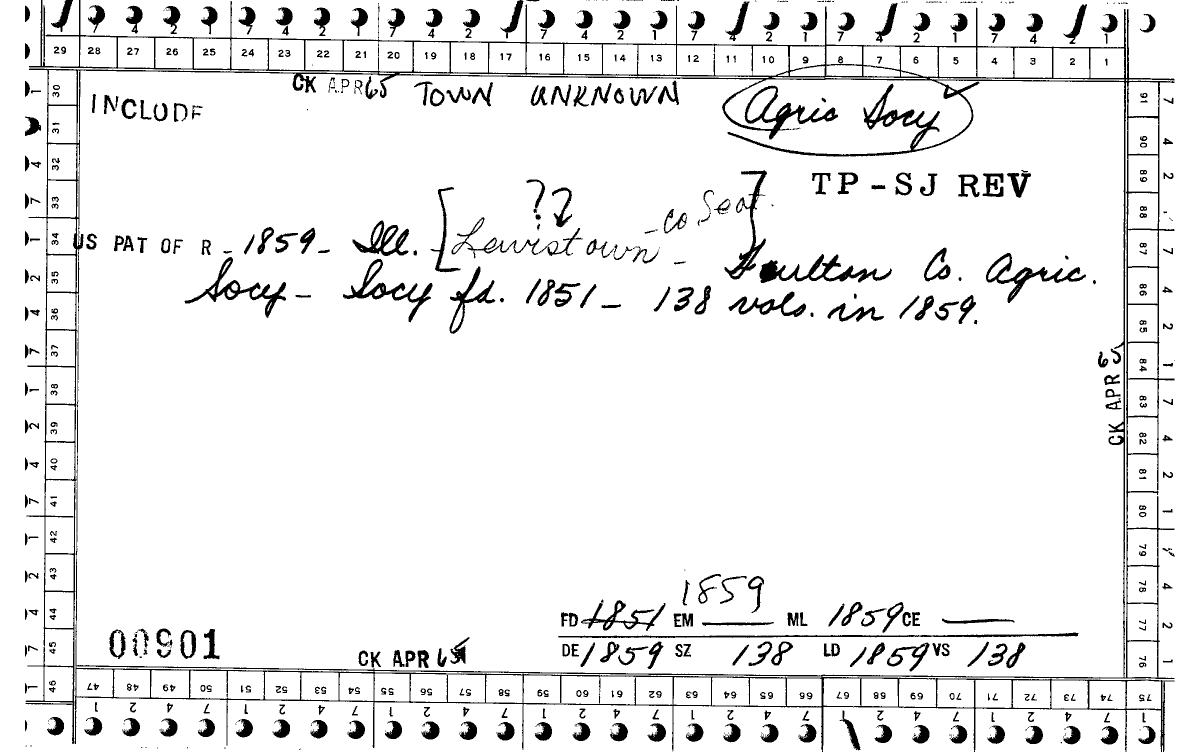 29 28 27 26 25 24 23 22 21 20 19 18 17 16 15 14 13 12 11 10 9 8 7 6 5 4 3 2 1
CK APR 65 TOWN UNKNOWN
INCLUDE
Agric Socy
TP-SJ REV
??
US PAT OF R - 1859 - Ill. [Lewistown - co Seat.] - Foulton Co. Agric.
Socy - Socy fd. 1851 - 138 vols. in 1859.
CK APR 65
1859
FD 1851 EM ML 1859 CE
DE 1859 SZ 138 LD 1859 VS 138
00901
CK APR 65
30 31 32 33 34 35 36 37 38 39 40 41 42 43 44 45 46
91 90 89 88 87 86 85 84 83 82 81 80 79 78 77 76 75
47 48 49 50 51 52 53 54 55 56 57 58 59 60 61 62 63 64 65 66 67 68 69 70 71 72 73 74 75